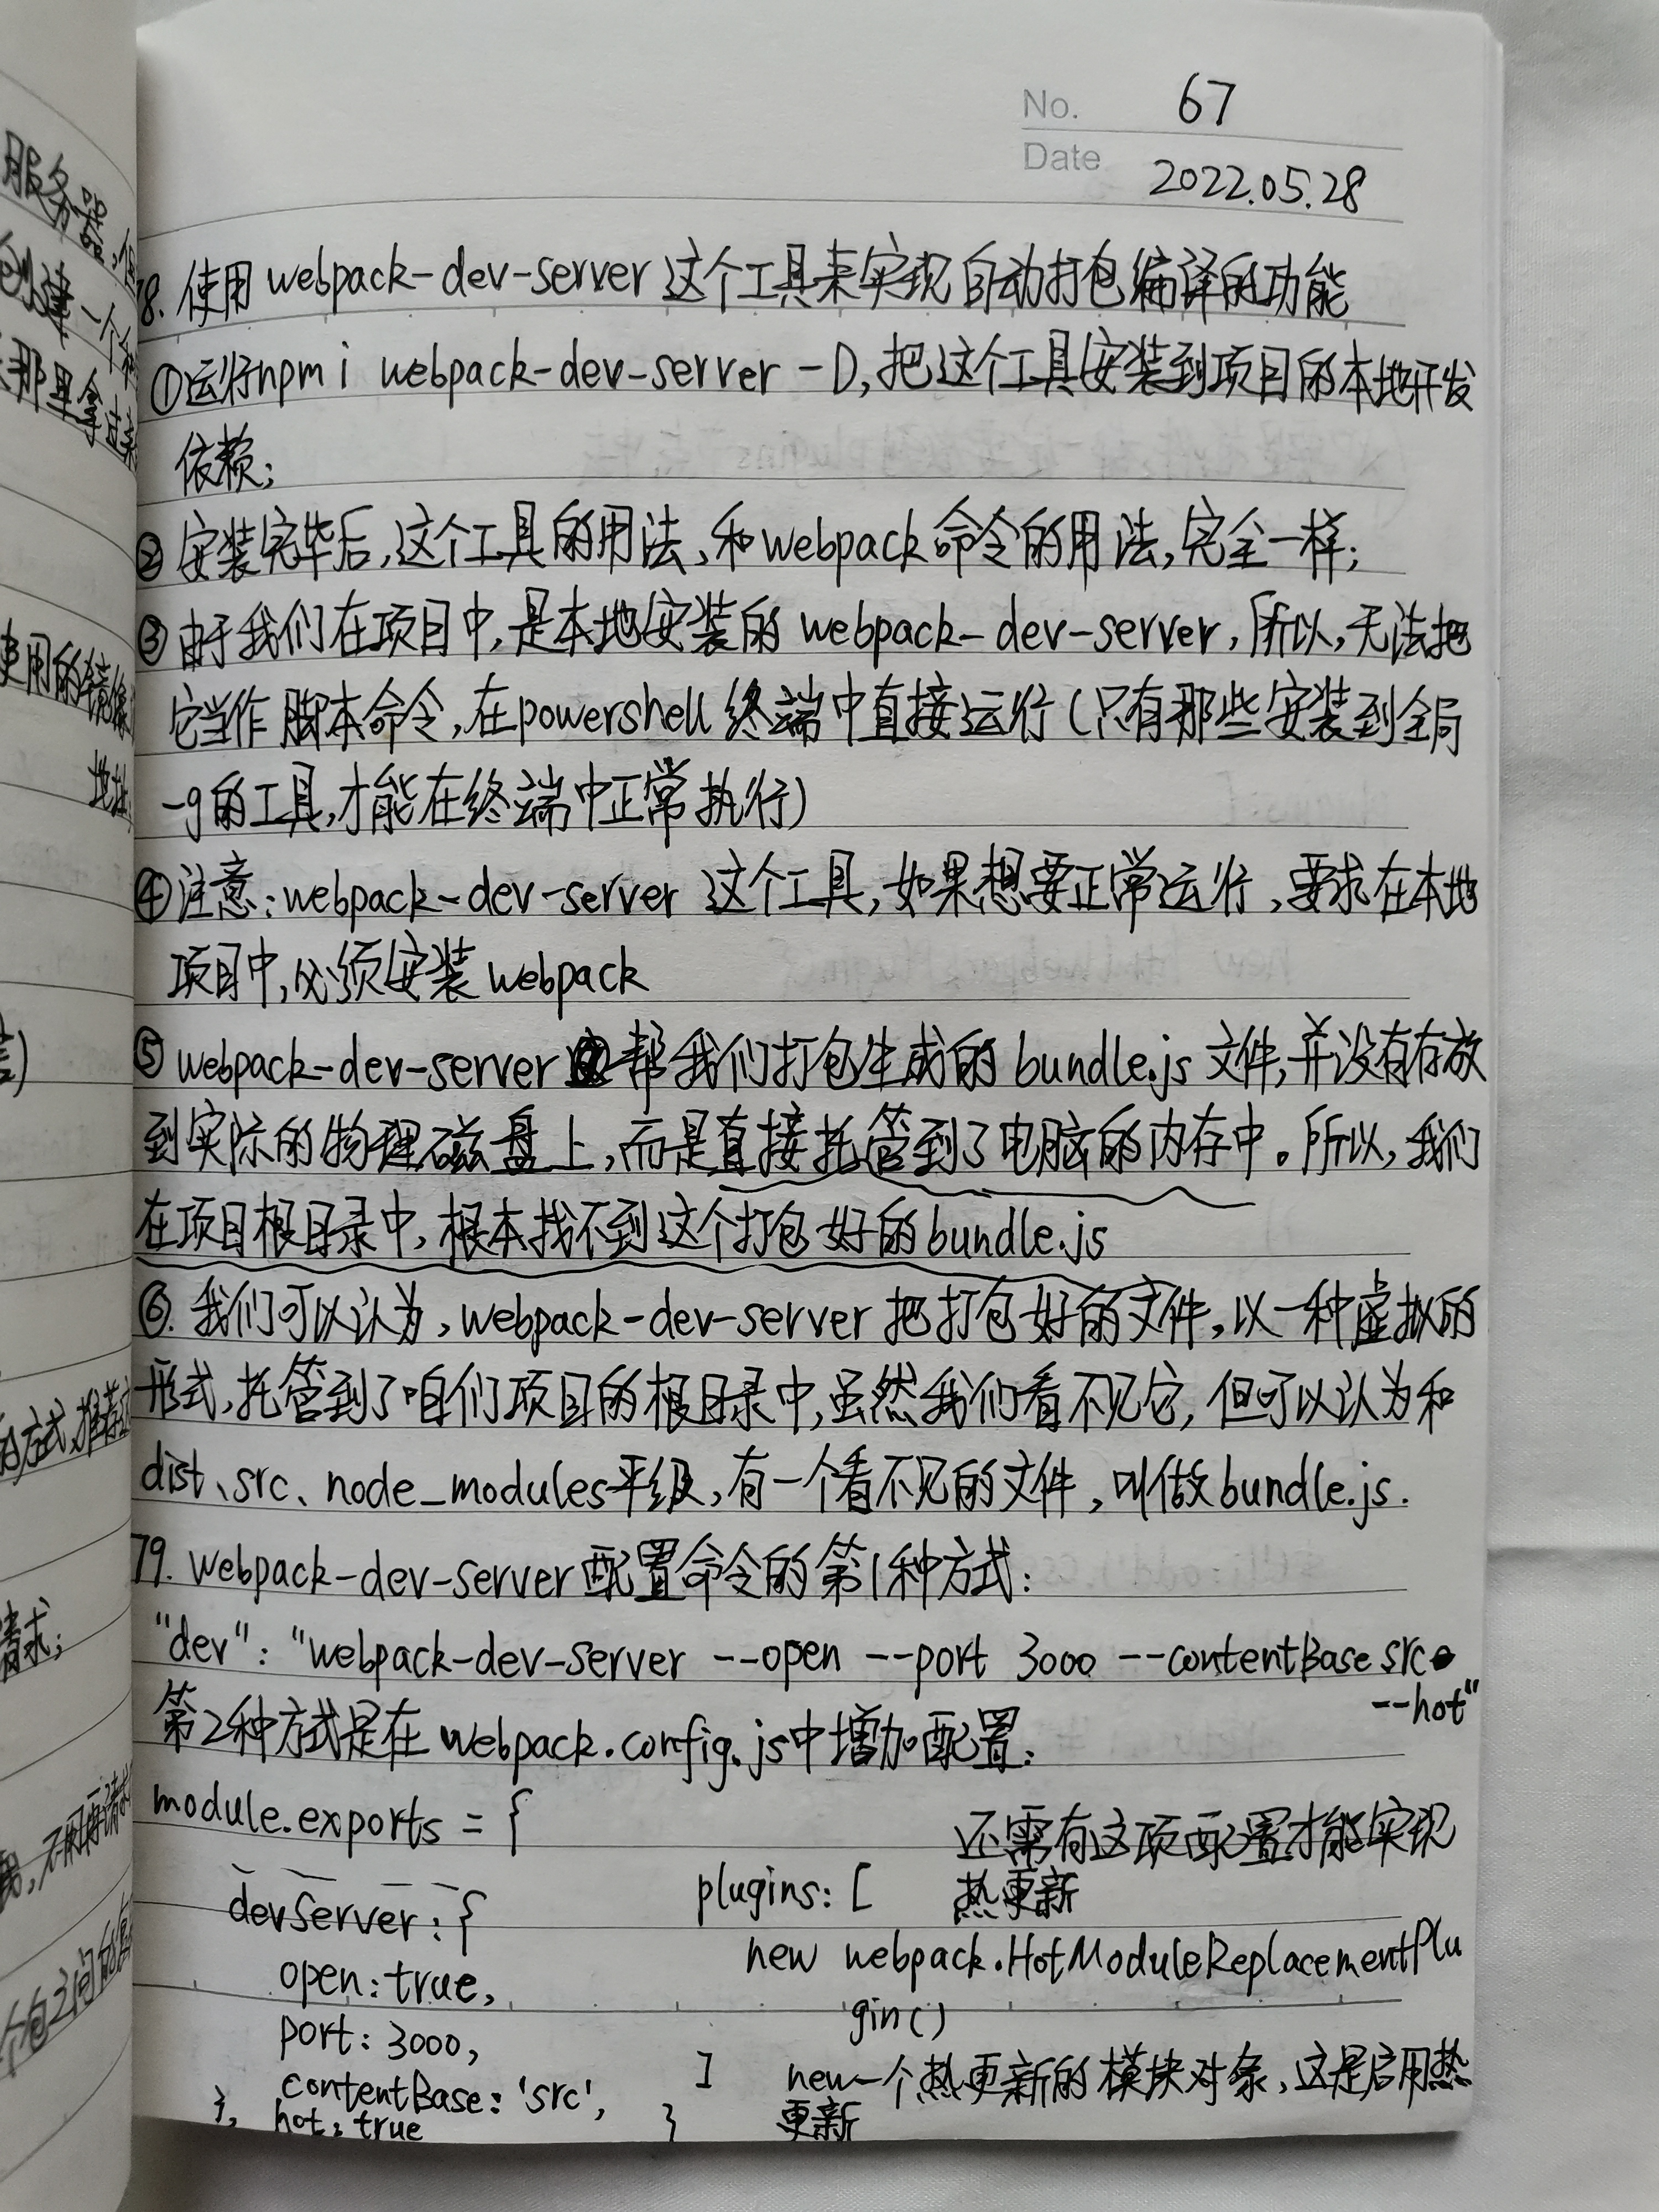 No. 67
Date 2022.05.28
78. 使用 webpack-dev-server 这个工具来实现自动打包编译的功能
①运行npm i webpack-dev-server -D,把这个工具安装到项目的本地开发
依赖;
②安装完毕后,这个工具的用法、和webpack命令的用法,完全一样;
③由于我们在项目中,是本地安装的 webpack-dev-server,所以,无法把
它当作 脚本命令,在powershell 终端中直接运行(只有那些安装到全局
-g的工具,才能在终端中正常执行)
④注意:webpack-dev-server 这个工具,如果想要正常运行,要求在本地
项目中,必须安装webpack
⑤webpack-dev-server帮我们打包生成的 bundle.js 文件,并没有存放
到实际的物理磁盘上,而是直接托管到了电脑的内存中。所以,我们
在项目根目录中,根本找不到这个打包好的bundle.js
⑥. 我们可以认为,webpack-dev-server 把打包好的文件,以一种虚拟的
形式,托管到了咱们项目的根目录中,虽然我们看不见它,但可以认为和
dist、src、node_modules平级,有一个看不见的文件,叫做bundle.js.
79. webpack-dev-server配置命令的第1种方式:
"dev": "webpack-dev-server --open --port 3000 --contentBase src
--hot"
第2种方式是在 webpack.config.js中增加配置:
module.exports = {
还需有这项配置才能实现
热更新
devServer: {
plugins: [
open: true,
new webpack.HotModuleReplacementPlu
gin()
port: 3000,
]
new一个热更新的模块对象,这是启用热
更新
contentBase: 'src',
hot: true
},
}
服务器,
创建一个
那里拿过来
使用的镜像
地址
请求;